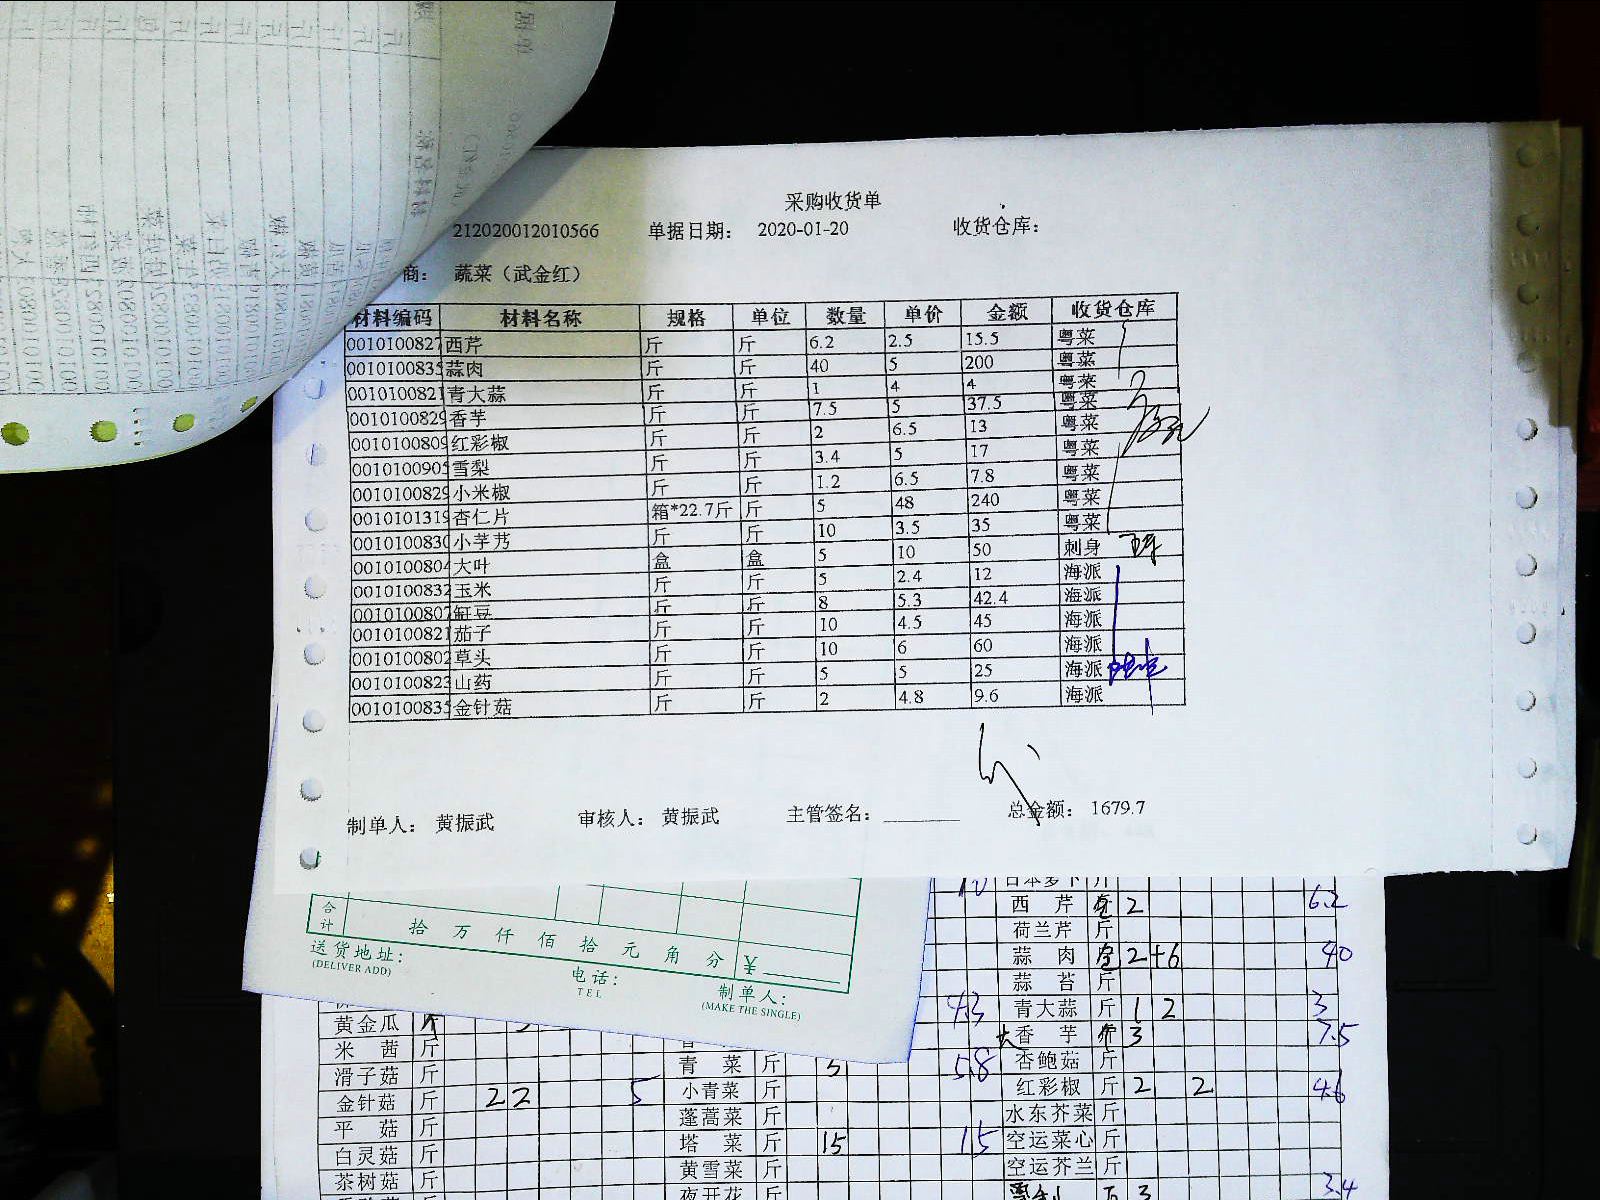 采购收货单
212020012010566 单据日期： 2020-01-20 收货仓库：
商： 蔬菜（武金红）
材料编码 材料名称 规格 单位 数量 单价 金额 收货仓库
0010100827 西芹 斤 斤 6.2 2.5 15.5 粤菜
0010100835 蒜肉 斤 斤 40 5 200 粤菜
0010100821 青大蒜 斤 斤 1 4 4 粤菜
0010100829 香芋 斤 斤 7.5 5 37.5 粤菜
0010100809 红彩椒 斤 斤 2 6.5 13 粤菜
0010100905 雪梨 斤 斤 3.4 5 17 粤菜
0010100829 小米椒 斤 斤 1.2 6.5 7.8 粤菜
0010101319 杏仁片 箱*22.7斤 斤 5 48 240 粤菜
0010100830 小芋艿 斤 斤 10 3.5 35 粤菜
0010100804 大叶 盒 盒 5 10 50 刺身
0010100832 玉米 斤 斤 5 2.4 12 海派
0010100807 豇豆 斤 斤 8 5.3 42.4 海派
0010100821 茄子 斤 斤 10 4.5 45 海派
0010100802 草头 斤 斤 10 6 60 海派
0010100823 山药 斤 斤 5 5 25 海派
0010100835 金针菇 斤 斤 2 4.8 9.6 海派
制单人： 黄振武 审核人： 黄振武 主管签名： 总金额： 1679.7
合计 拾 万 仟 佰 拾 元 角 分 ¥
送货地址：
(DELIVER ADD)
电话：
TEL
制单人：
(MAKE THE SINGLE)
10 日本萝卜 斤
西芹 2 6.2
荷兰芹 斤
蒜肉 2+6 40
蒜苔 斤
4.3 青大蒜 斤 1 2 3
黄金瓜 香芋 3 7.5
米茜 斤
青菜 斤 5 5.8 杏鲍菇 斤
滑子菇 斤 小青菜 斤 红彩椒 斤 2 2 4.6
金针菇 斤 2 2 5 蓬蒿菜 斤 水东芥菜 斤
平菇 斤 塔菜 斤 15 15 空运菜心 斤
白灵菇 斤 黄雪菜 斤 空运芥兰 斤
茶树菇 斤 夜开花 斤 3 3.4